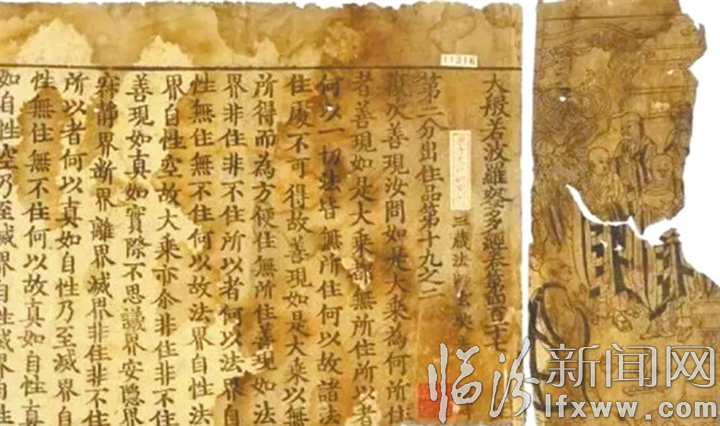 11316
大般若波羅蜜多經卷第四百十七
三藏法師玄奘
第二分出住品第十九之二
復次善現汝問如是大乘為何所住
者善現如是大乘都無所住所以者
何以一切法皆無所住何以故諸法
住處不可得故善現如是大乘以無
所得而為方便住無所住善現如法
界非住非不住所以者何以法界自
性無住無不住何以故法界自性法
界自性空故大乘亦尒非住非不住
善現如真如實際不思議界安隱界
寂静界斷界離界滅界非住非不住
所以者何以真如自性乃至滅界自
性無住無不住何以故真如自性真
如自性空乃至滅界自性滅界自性
临汾新闻网
lfxww.com